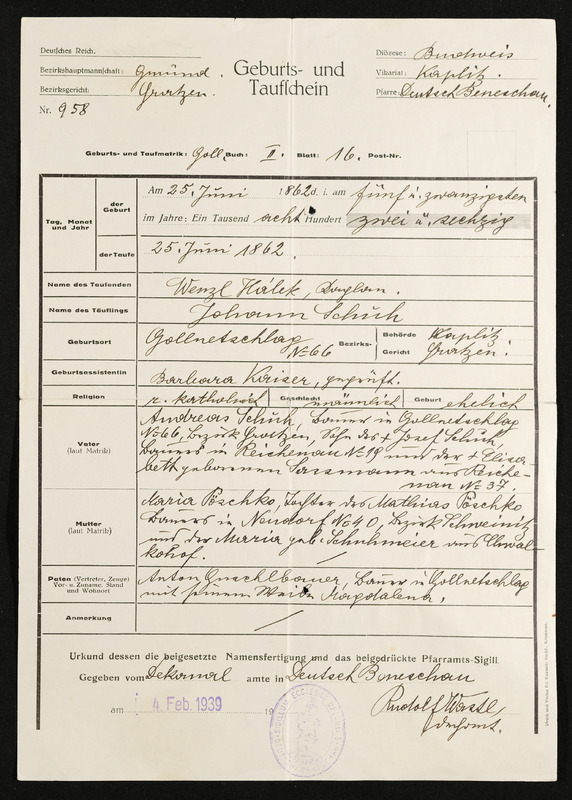 Deutsches Reich.
Bezirkshauptmannschaft: Gmünd.
Bezirksgericht: Gratzen.
Nr. 958
Geburts- und
Taufschein
Diözese: Budweis
Vikariat: Kaplitz.
Pfarre: Deutsch Beneschau.
Geburts- und Taufmatrik: Goll. Buch: II. Blatt: 16. Post-Nr.
Tag, Monat und Jahr
der Geburt
Am 25. Juni 1862 d. i. am fünf u. zwanzigsten
im Jahre: Ein Tausend acht Hundert zwei u. sechzig
der Taufe
25. Juni 1862.
Name des Taufenden Wenzl Hálek, Kaplan.
Name des Täuflings Johann Schuh
Geburtsort Gollnetschlag No 66 Bezirks- Behörde Kaplitz
Gericht Gratzen.
Geburtsassistentin Barbara Kaiser, geprüft.
Religion r. katholisch Geschlecht männlich Geburt ehelich
Vater (laut Matrik)
Andreas Schuh, Bauer in Gollnetschlag
No 66, Bezirk Gratzen, Sohn des + Josef Schuh
Bauers in Reichenau No 19 und der + Elisa-
beth geborenen Sassmann aus Reiche-
nau No 37.
Mutter (laut Matrik)
Maria Pöschko, Tochter des Mathias Pöschko
Bauers in Neudorf No 40, Bezirk Schweinitz
und der Maria geb. Schuhmeier aus Chwal-
kohof.
Paten (Vertreter, Zeuge) Vor- u. Zuname, Stand und Wohnort
Anton Guschlbauer, Bauer in Gollnetschlag
mit seinem Weibe Magdalena.
Anmerkung
Urkund dessen die beigesetzte Namensfertigung und das beigedrückte Pfarramts-Sigill.
Gegeben vom Dekanal amte in Deutsch Beneschau
am 4. Feb. 1939 19
Rudolf Wastl,
Dechant.